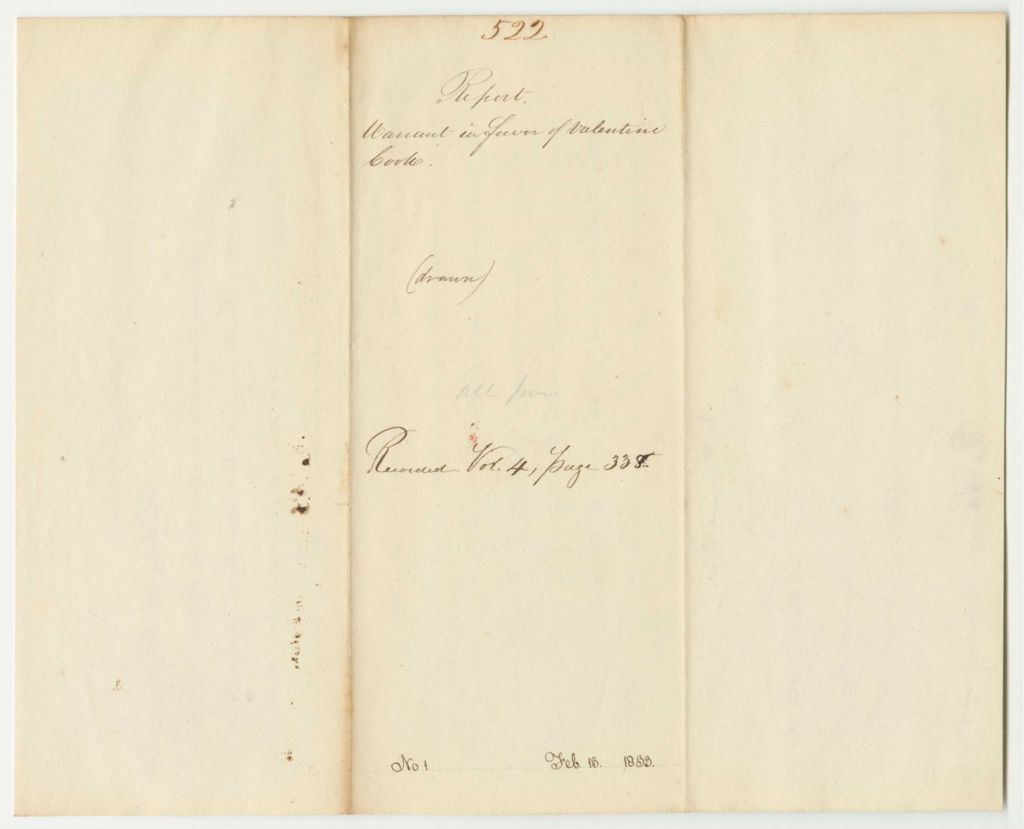 522
Report.
Warrant in favor of Valentine
Cook.
(drawn)
Recorded Vol. 4, page 338
No 1 Feb. 18. 1833.